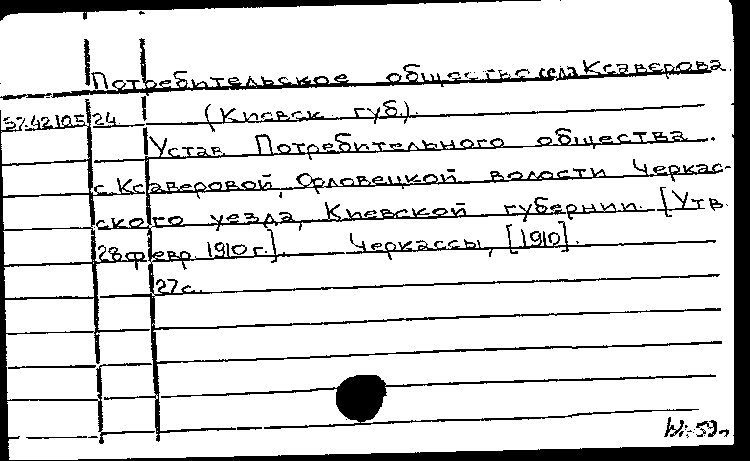 Потребительское общество села Ксаверова
37.42105 24 (Киевск губ.).
Устав Потребительного общества
с. Ксаверовой, Орловецкой волости Черкас-
ского уезда, Киевской губернии. [Утв.
28 февр. 1910 г.]. Черкассы, [1910].
27 с.